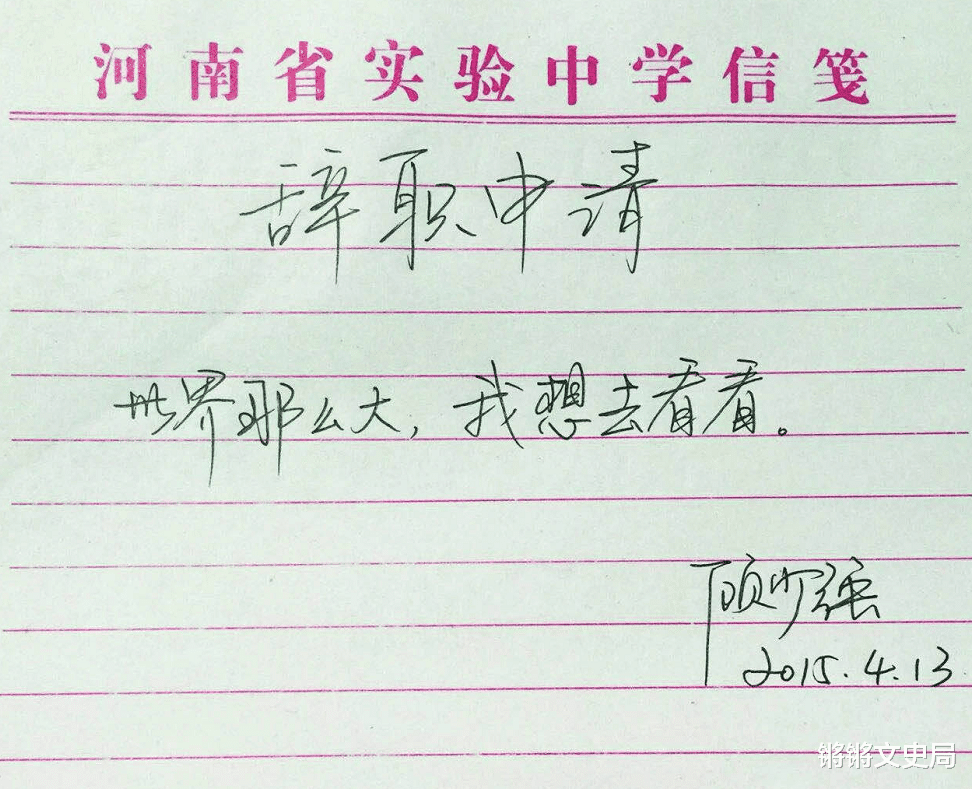 河南省实验中学信笺
辞职申请
世界那么大，我想去看看。
顾少强
2015.4.13
锵锵文史局